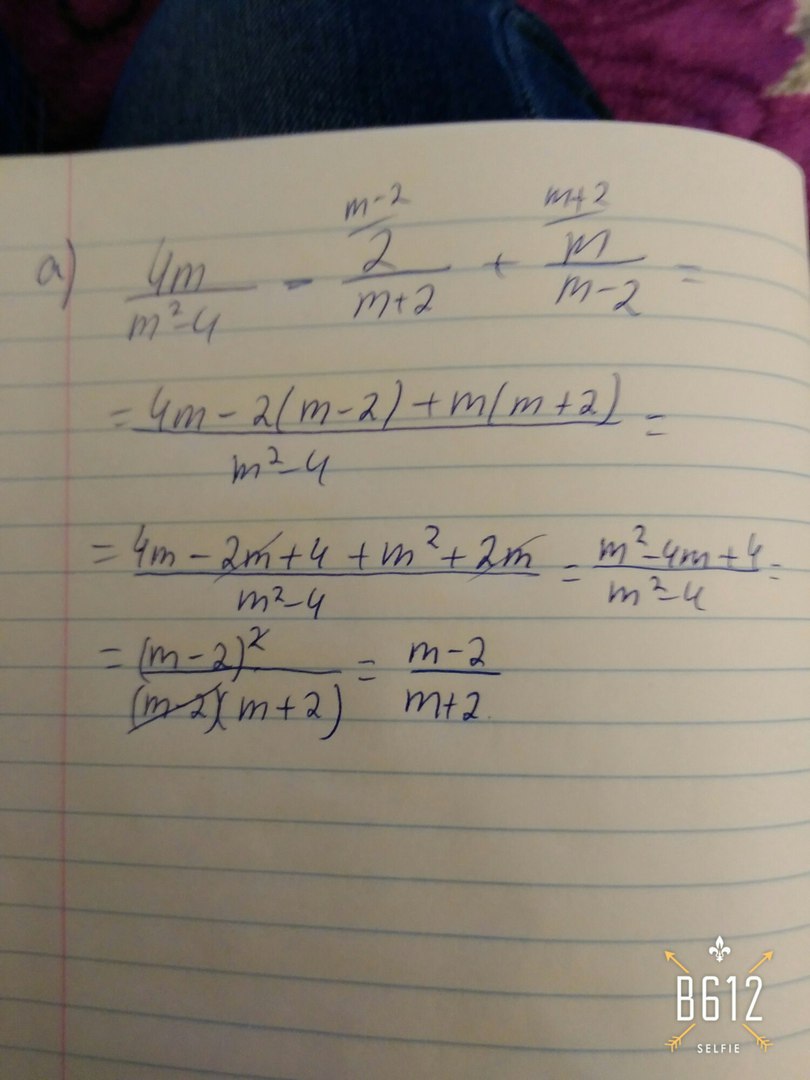 a) 4m/(m²-4) - 2/(m+2) (m-2 + m/(m-2) (m+2 =
= (4m - 2(m-2) + m(m+2))/(m²-4) =
= (4m - 2m + 4 + m² + 2m)/(m²-4) = (m²-4m+4)/(m²-4) =
= (m-2)²/((m-2)(m+2)) = (m-2)/(m+2)
B612
SELFIE